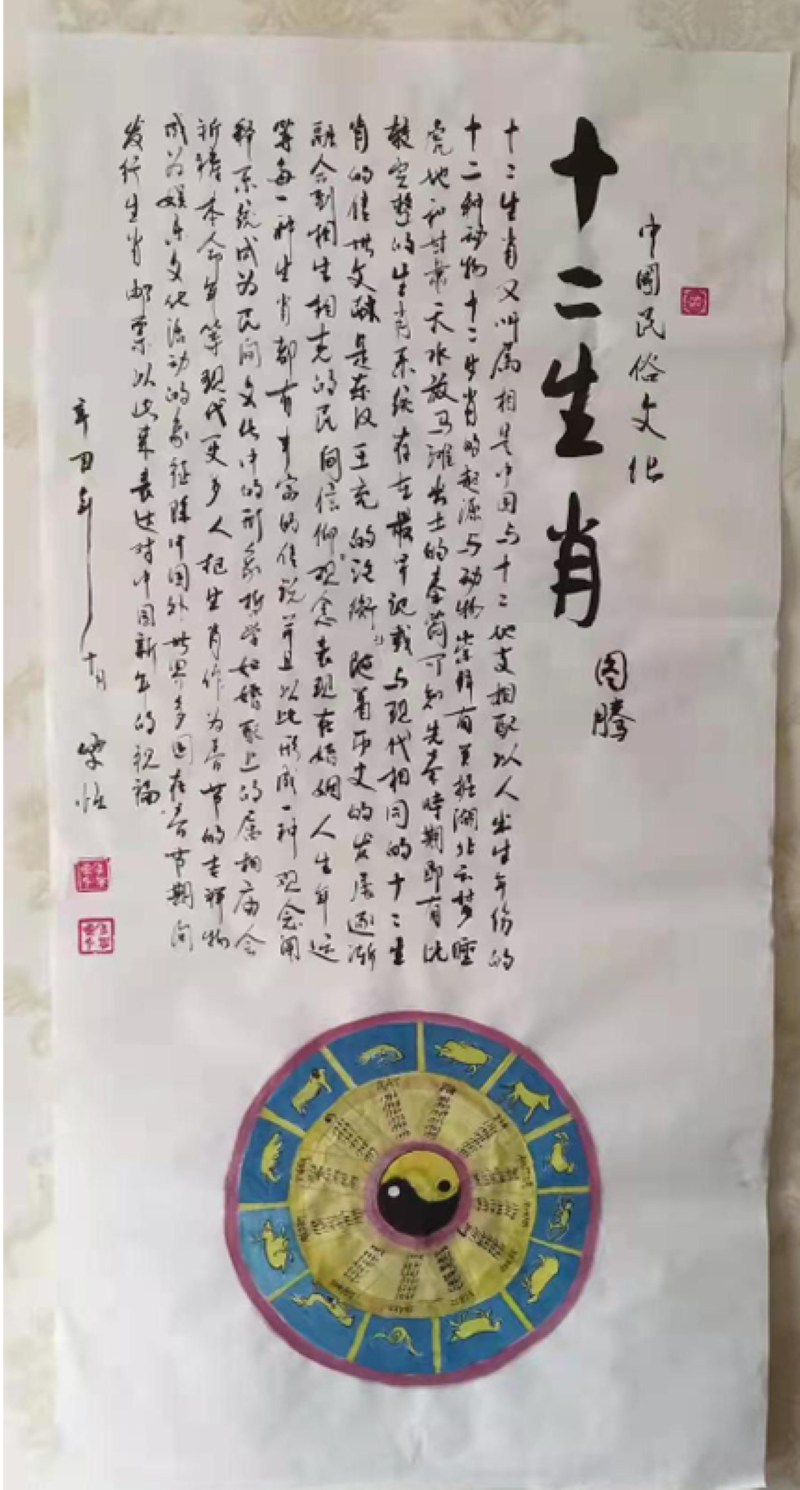 中國民俗文化
十二生肖
图腾
十二生肖又叫属相是中国与十二地支相配以人出生年份的
十二种动物十二生肖的起源与动物崇拜有关据湖北云梦睡
虎地和甘肃天水放马滩出土的秦简可知先秦时期即有比
较完整的生肖系统存在最早记载与现代相同的十二生
肖的传世文献是东汉王充的论衡随着历史的发展逐渐
融合到相生相克的民间信仰观念表现在婚姻人生年运
等每一种生肖都有丰富的传说并且以此形成一种观念阐
释系统成为民间文化中的形象哲学如婚配上的属相庙会
祈祷本命年等现代更多人把生肖作为春节的吉祥物
成为娱乐文化活动的象征除中国外世界多国在春节期间
发行生肖邮票以此来表达对中国新年的祝福
辛丑年十月
RAT